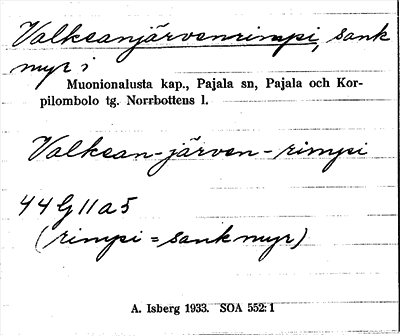 Valkeanjärvenrimpi, sank
myr i
Muonionalusta kap., Pajala sn, Pajala och Kor-
pilombolo tg. Norrbottens l.
Valkean-järven-rimpi
44G11a5
(rimpi = sank myr)
A. Isberg 1933. SOA 552: 1